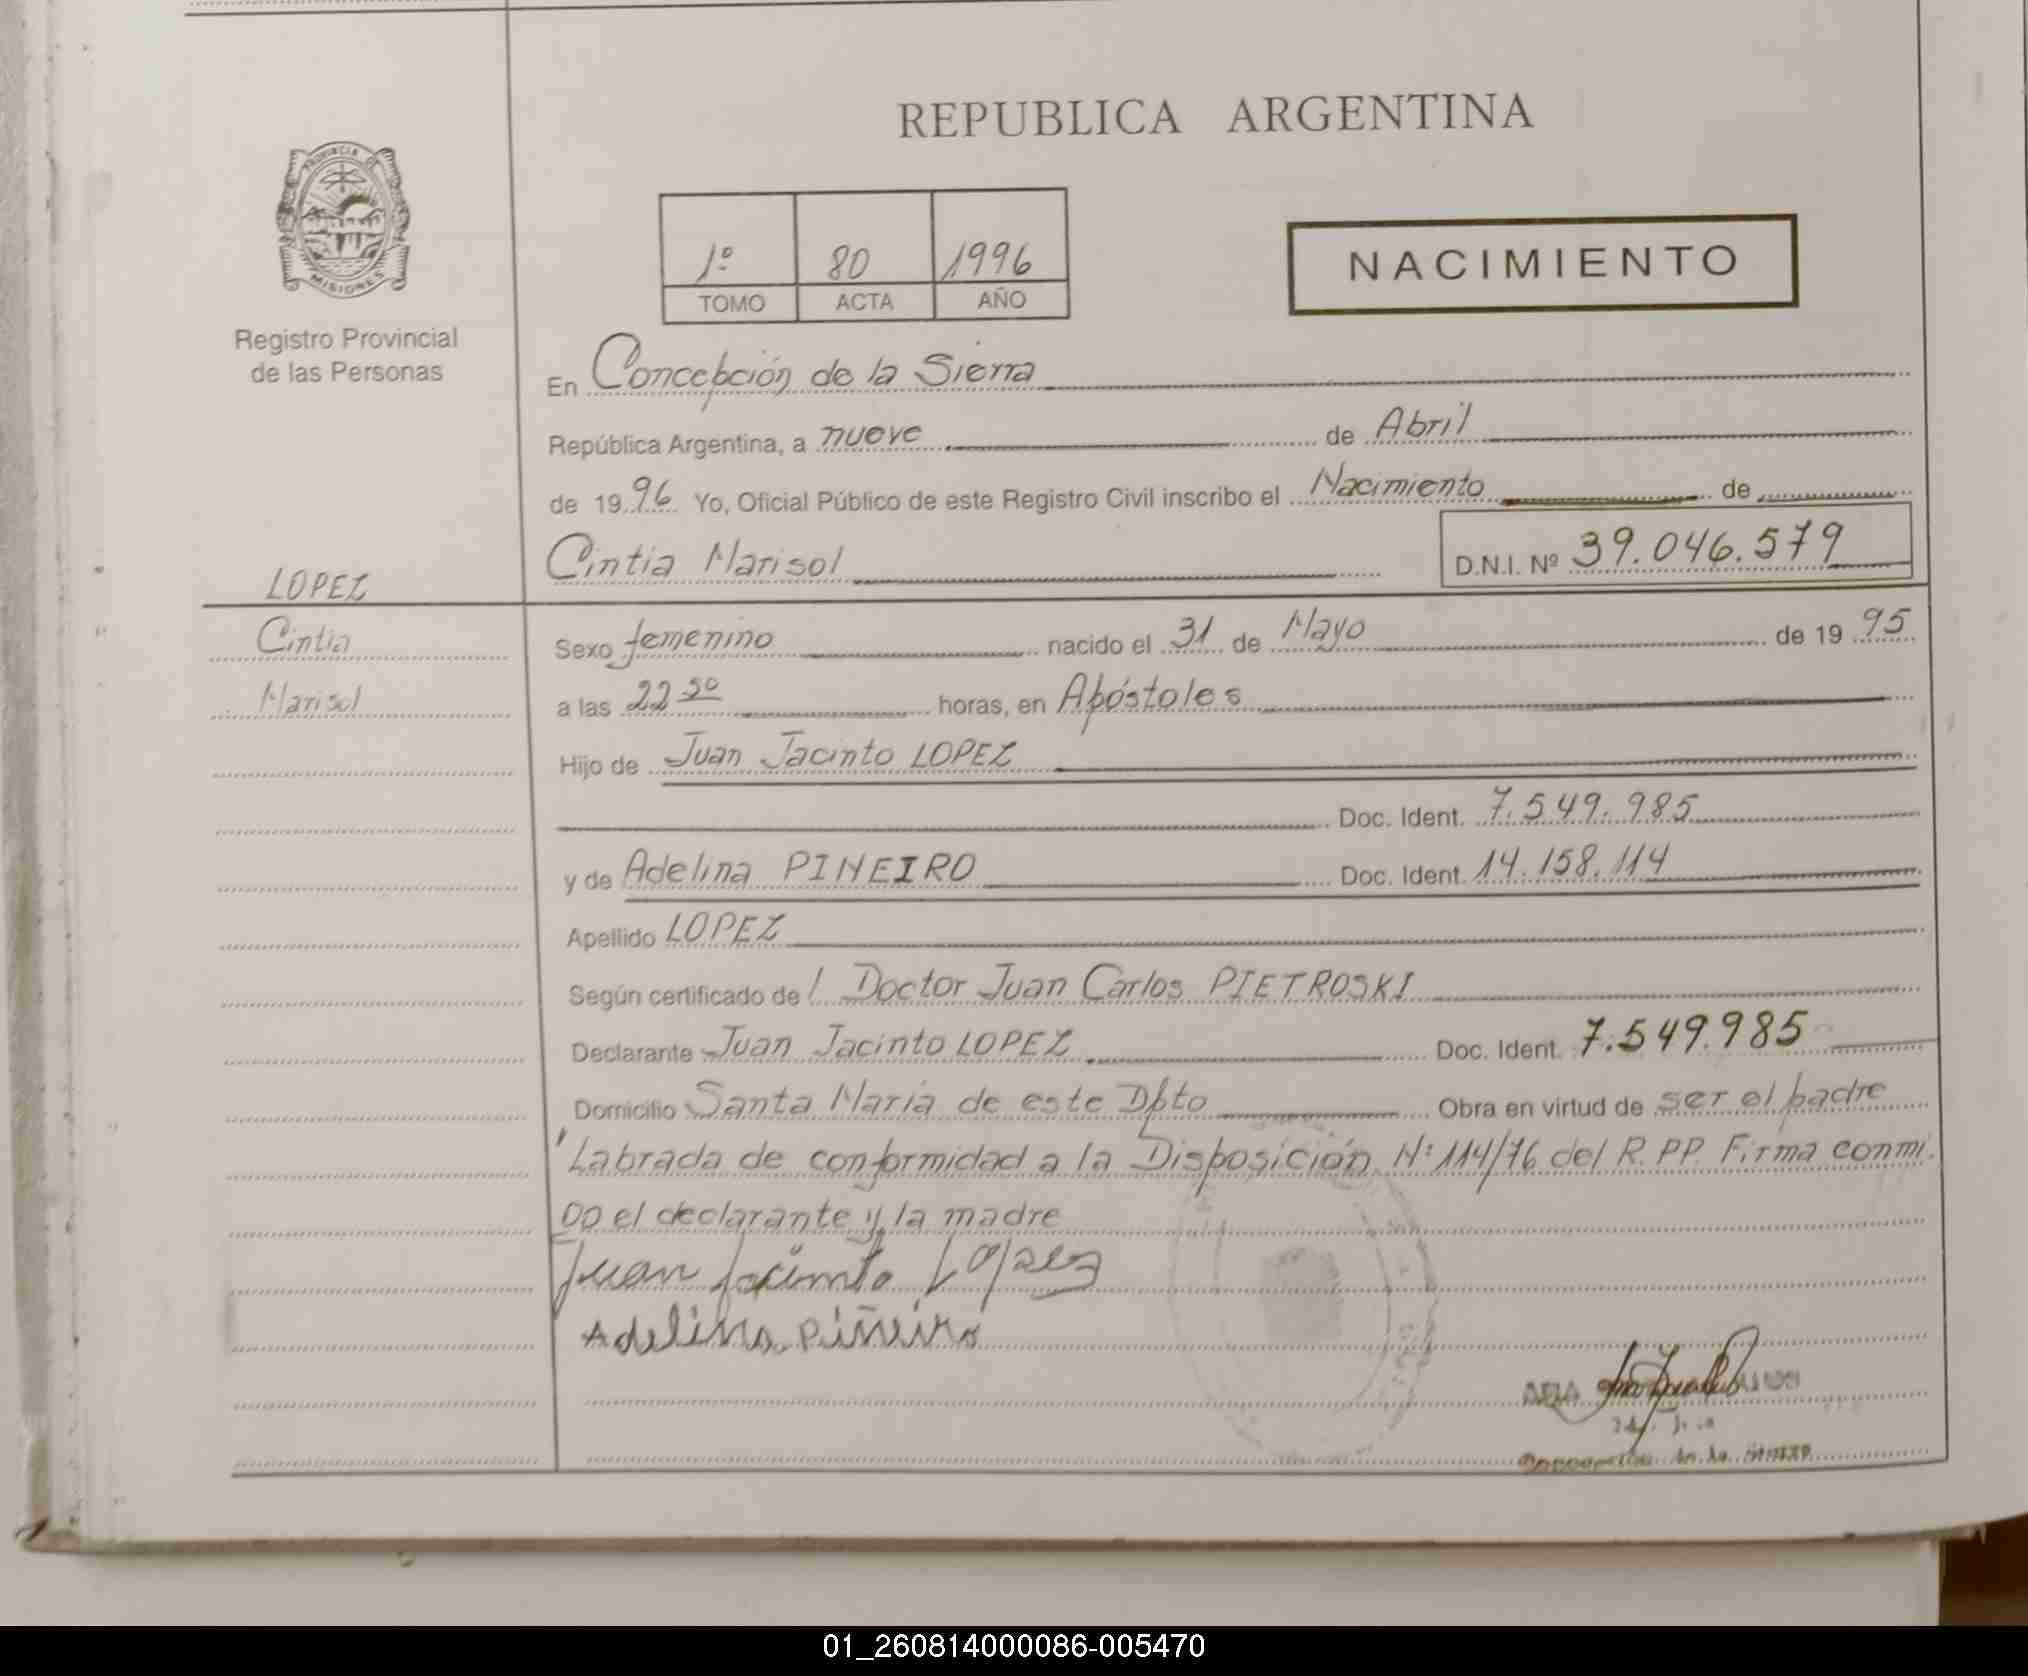 REPUBLICA ARGENTINA
PROVINCIA DE
MISIONES
Registro Provincial
de las Personas
1º 80 1996
TOMO ACTA AÑO
NACIMIENTO
En Concepción de la Sierra
República Argentina, a nueve de Abril
de 1996 Yo, Oficial Público de este Registro Civil inscribo el Nacimiento de
Cintia Marisol D.N.I. Nº 39.046.579
LOPEZ
Cintia
Marisol
Sexo femenino nacido el 31 de Mayo de 1995
a las 22 50 horas, en Apóstoles
Hijo de Juan Jacinto LOPEZ
Doc. Ident. 7.549.985
y de Adelina PINEIRO Doc. Ident. 14.158.114
Apellido LOPEZ
Según certificado del Doctor Juan Carlos PIETROSKI
Declarante Juan Jacinto LOPEZ Doc. Ident. 7.549.985
Domicilio Santa María de este Dpto Obra en virtud de ser el padre
Labrada de conformidad a la Disposición Nº 114/76 del R.PP. Firma conmi.
go el declarante y la madre
Juan Jacinto Lopez
Adelina Piñeiro
01_260814000086-005470